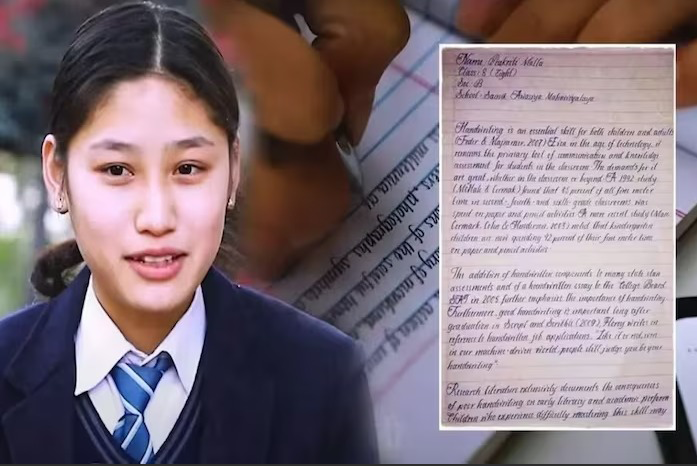 Name: Prakriti Malla
Class: 8 (Eight)
Sec: B
School:-Sainik Awasiya Mahavidyalaya
Handwriting is an essential skill for both children and adults
(Feder & Majnemer, 2007) Even in the age of technology, it
remains the primary tool of communication and knowledge
assessment for students in the classroom. The demands for it
are great, whether in the classroom or beyond. A 1992 study
(McHale & Cermak) found that 85 percent of all fine motor
time in second- fourth- and sixth- grade classrooms was
spent on paper and pencil activities. A more recent study (Marr
Cermak, Cohn & Henderson, 2003) noted that kindergarten
children are now spending 42 percent of their fine motor time
on paper and pencil activities
The addition of handwritten components to many state stan
assessments and of a handwritten essay to the College Board
SAT in 2005 further emphasize the importance of handwriting
Furthermore, good handwriting is important long after
graduation in Script and Scribble (2009), Florey writes in
reference to handwritten job applications. "Like it or not, even
in our machine-driven world, people still judge you by your
handwriting"
Research literature extensively documents the consequences
of poor handwriting on early literacy and academic perform
Children who experience difficulty mastering this skill may